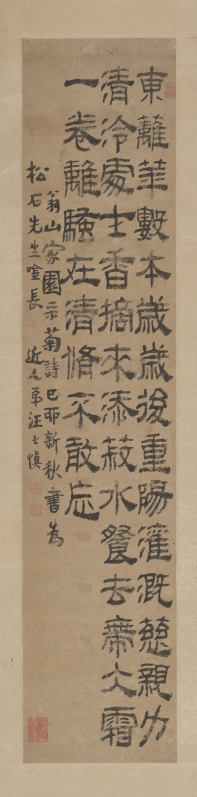 東籬華數本歲歲後重陽灌溉慈親力
清泠處士香摘來添菽水餐去廌大霜
一卷離騷在清脩不敢忘
翁山家園采菊詩己卯新秋書為
松石先生喭長 近人弟汪士慎